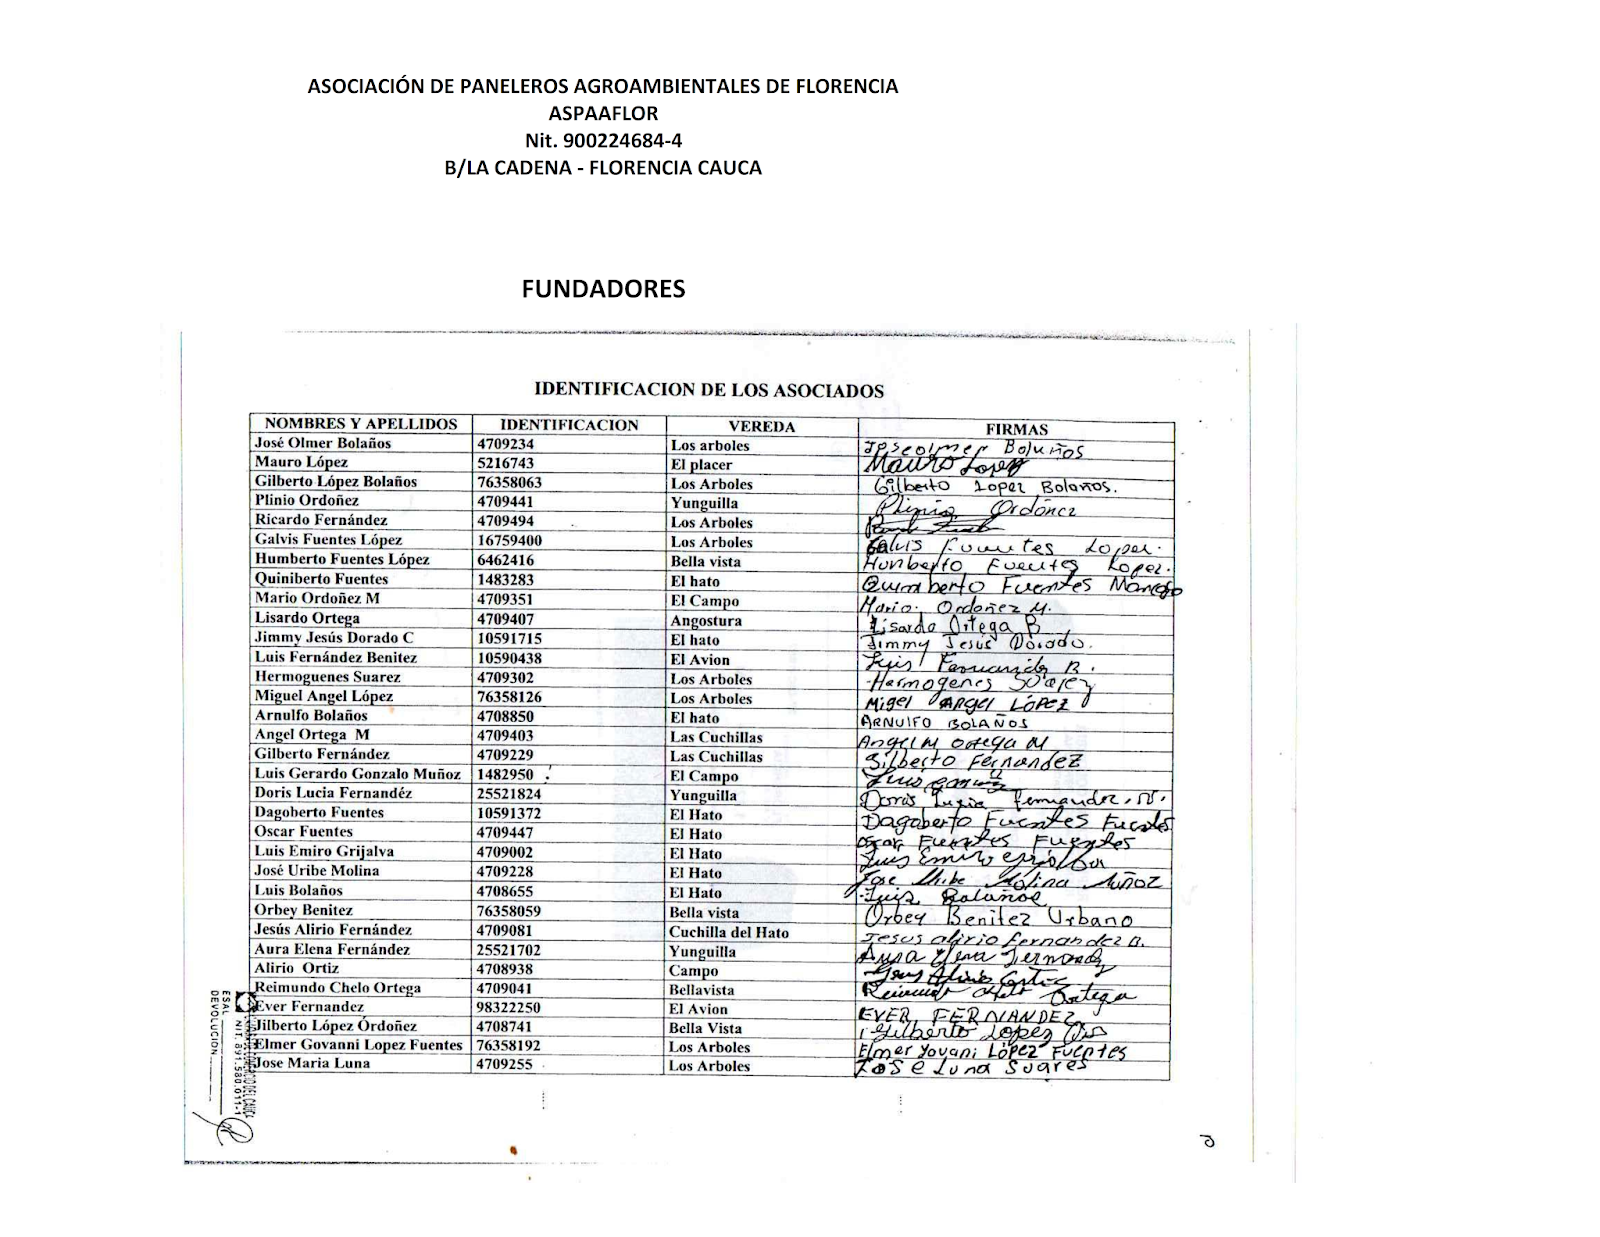 ASOCIACIÓN DE PANELEROS AGROAMBIENTALES DE FLORENCIA
ASPAAFLOR
Nit. 900224684-4
B/LA CADENA - FLORENCIA CAUCA
FUNDADORES
IDENTIFICACION DE LOS ASOCIADOS
NOMBRES Y APELLIDOS IDENTIFICACION VEREDA FIRMAS
José Olmer Bolaños 4709234 Los arboles Joseolmer Bolaños
Mauro López 5216743 El placer Mauro Lopez
Gilberto López Bolaños 76358063 Los Arboles Gilberto Lopez Bolaños.
Plinio Ordoñez 4709441 Yunguilla Plinio Ordóñez
Ricardo Fernández 4709494 Los Arboles
Galvis Fuentes López 16759400 Los Arboles Galvis Fuentes Lopez.
Humberto Fuentes López 6462416 Bella vista Hunberto Fuentes Lopez.
Quiniberto Fuentes 1483283 El hato Quiniberto Fuentes
Mario Ordoñez M 4709351 El Campo Mario. Ordoñez M.
Lisardo Ortega 4709407 Angostura Lisardo Ortega B
Jimmy Jesús Dorado C 10591715 El hato Jimmy Jesús Dorado.
Luis Fernández Benitez 10590438 El Avion Luis Fernandez B.
Hermoguenes Suarez 4709302 Los Arboles Hermogenes Suarez
Miguel Angel López 76358126 Los Arboles Migel Angel López
Arnulfo Bolaños 4708850 El hato ARNULFO BOLAÑOS
Angel Ortega M 4709403 Las Cuchillas Angel M Ortega M
Gilberto Fernández 4709229 Las Cuchillas Gilberto Fernandez
Luis Gerardo Gonzalo Muñoz 1482950 El Campo Luis
Doris Lucia Fernandéz 25521824 Yunguilla Doris Lucia Fernandez.
Dagoberto Fuentes 10591372 El Hato Dagoberto Fuentes Fuentes
Oscar Fuentes 4709447 El Hato Oscar Fuentes Fuentes
Luis Emiro Grijalva 4709002 El Hato Luis Emiro Grijalba
José Uribe Molina 4709228 El Hato Jose Uribe Molina Muñoz
Luis Bolaños 4708655 El Hato Luis Bolaños
Orbey Benitez 76358059 Bella vista Orbey Benitez Urbano
Jesús Alirio Fernández 4709081 Cuchilla del Hato Jesus alirio fernandez B.
Aura Elena Fernández 25521702 Yunguilla Aura Elena Fernandez
Alirio Ortiz 4708938 Campo
Reimundo Chelo Ortega 4709041 Bellavista Ortega
Ever Fernandez 98322250 El Avion EVER FERNANDEZ
Jilberto López Órdoñez 4708741 Bella Vista Gilberto López
Elmer Govanni Lopez Fuentes 76358192 Los Arboles Elmer Yovani López Fuentes
Jose Maria Luna 4709255 Los Arboles Jose Luna Suares
NIT. 891.580.011-1
ESAL
DEVOLUCION